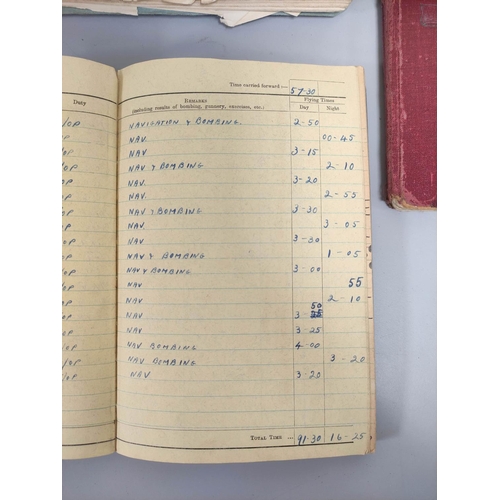 Time carried forward :— 57-30
Duty REMARKS Flying Times
(including results of bombing, gunnery, exercises, etc.) Day Night
NAVIGATION & BOMBING. 2-50
NAV. 00-45
NAV 3-15
NAV & BOMBING 2-10
NAV. 3-20
NAV. 2-55
NAV & BOMBING 3-30
NAV. 3-05
NAV 3-30
NAV & BOMBING 1-05
NAV & BOMBING 3-00
NAV 55
NAV 2-10
NAV 3-50
NAV 3-25
NAV BOMBING 4-00
NAV BOMBING 3-20
NAV 3-20
TOTAL TIME ... 91-30 16-25